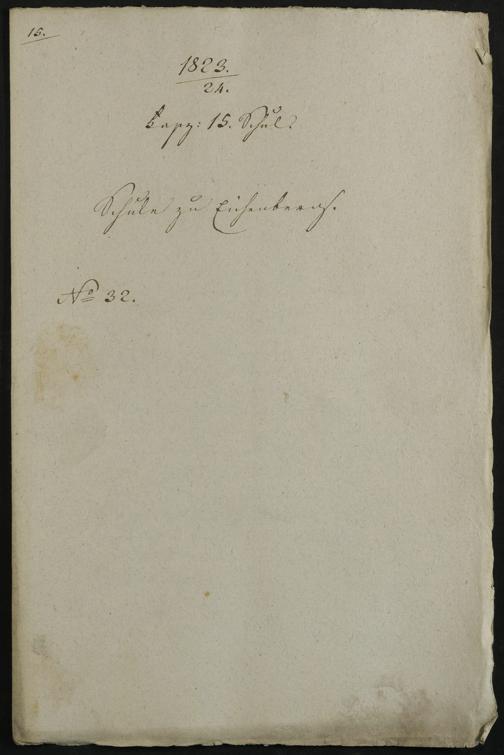 15.
1823.
24.
Lapp: 15. Schul.
Schule zu Eichenberg.
No 32.